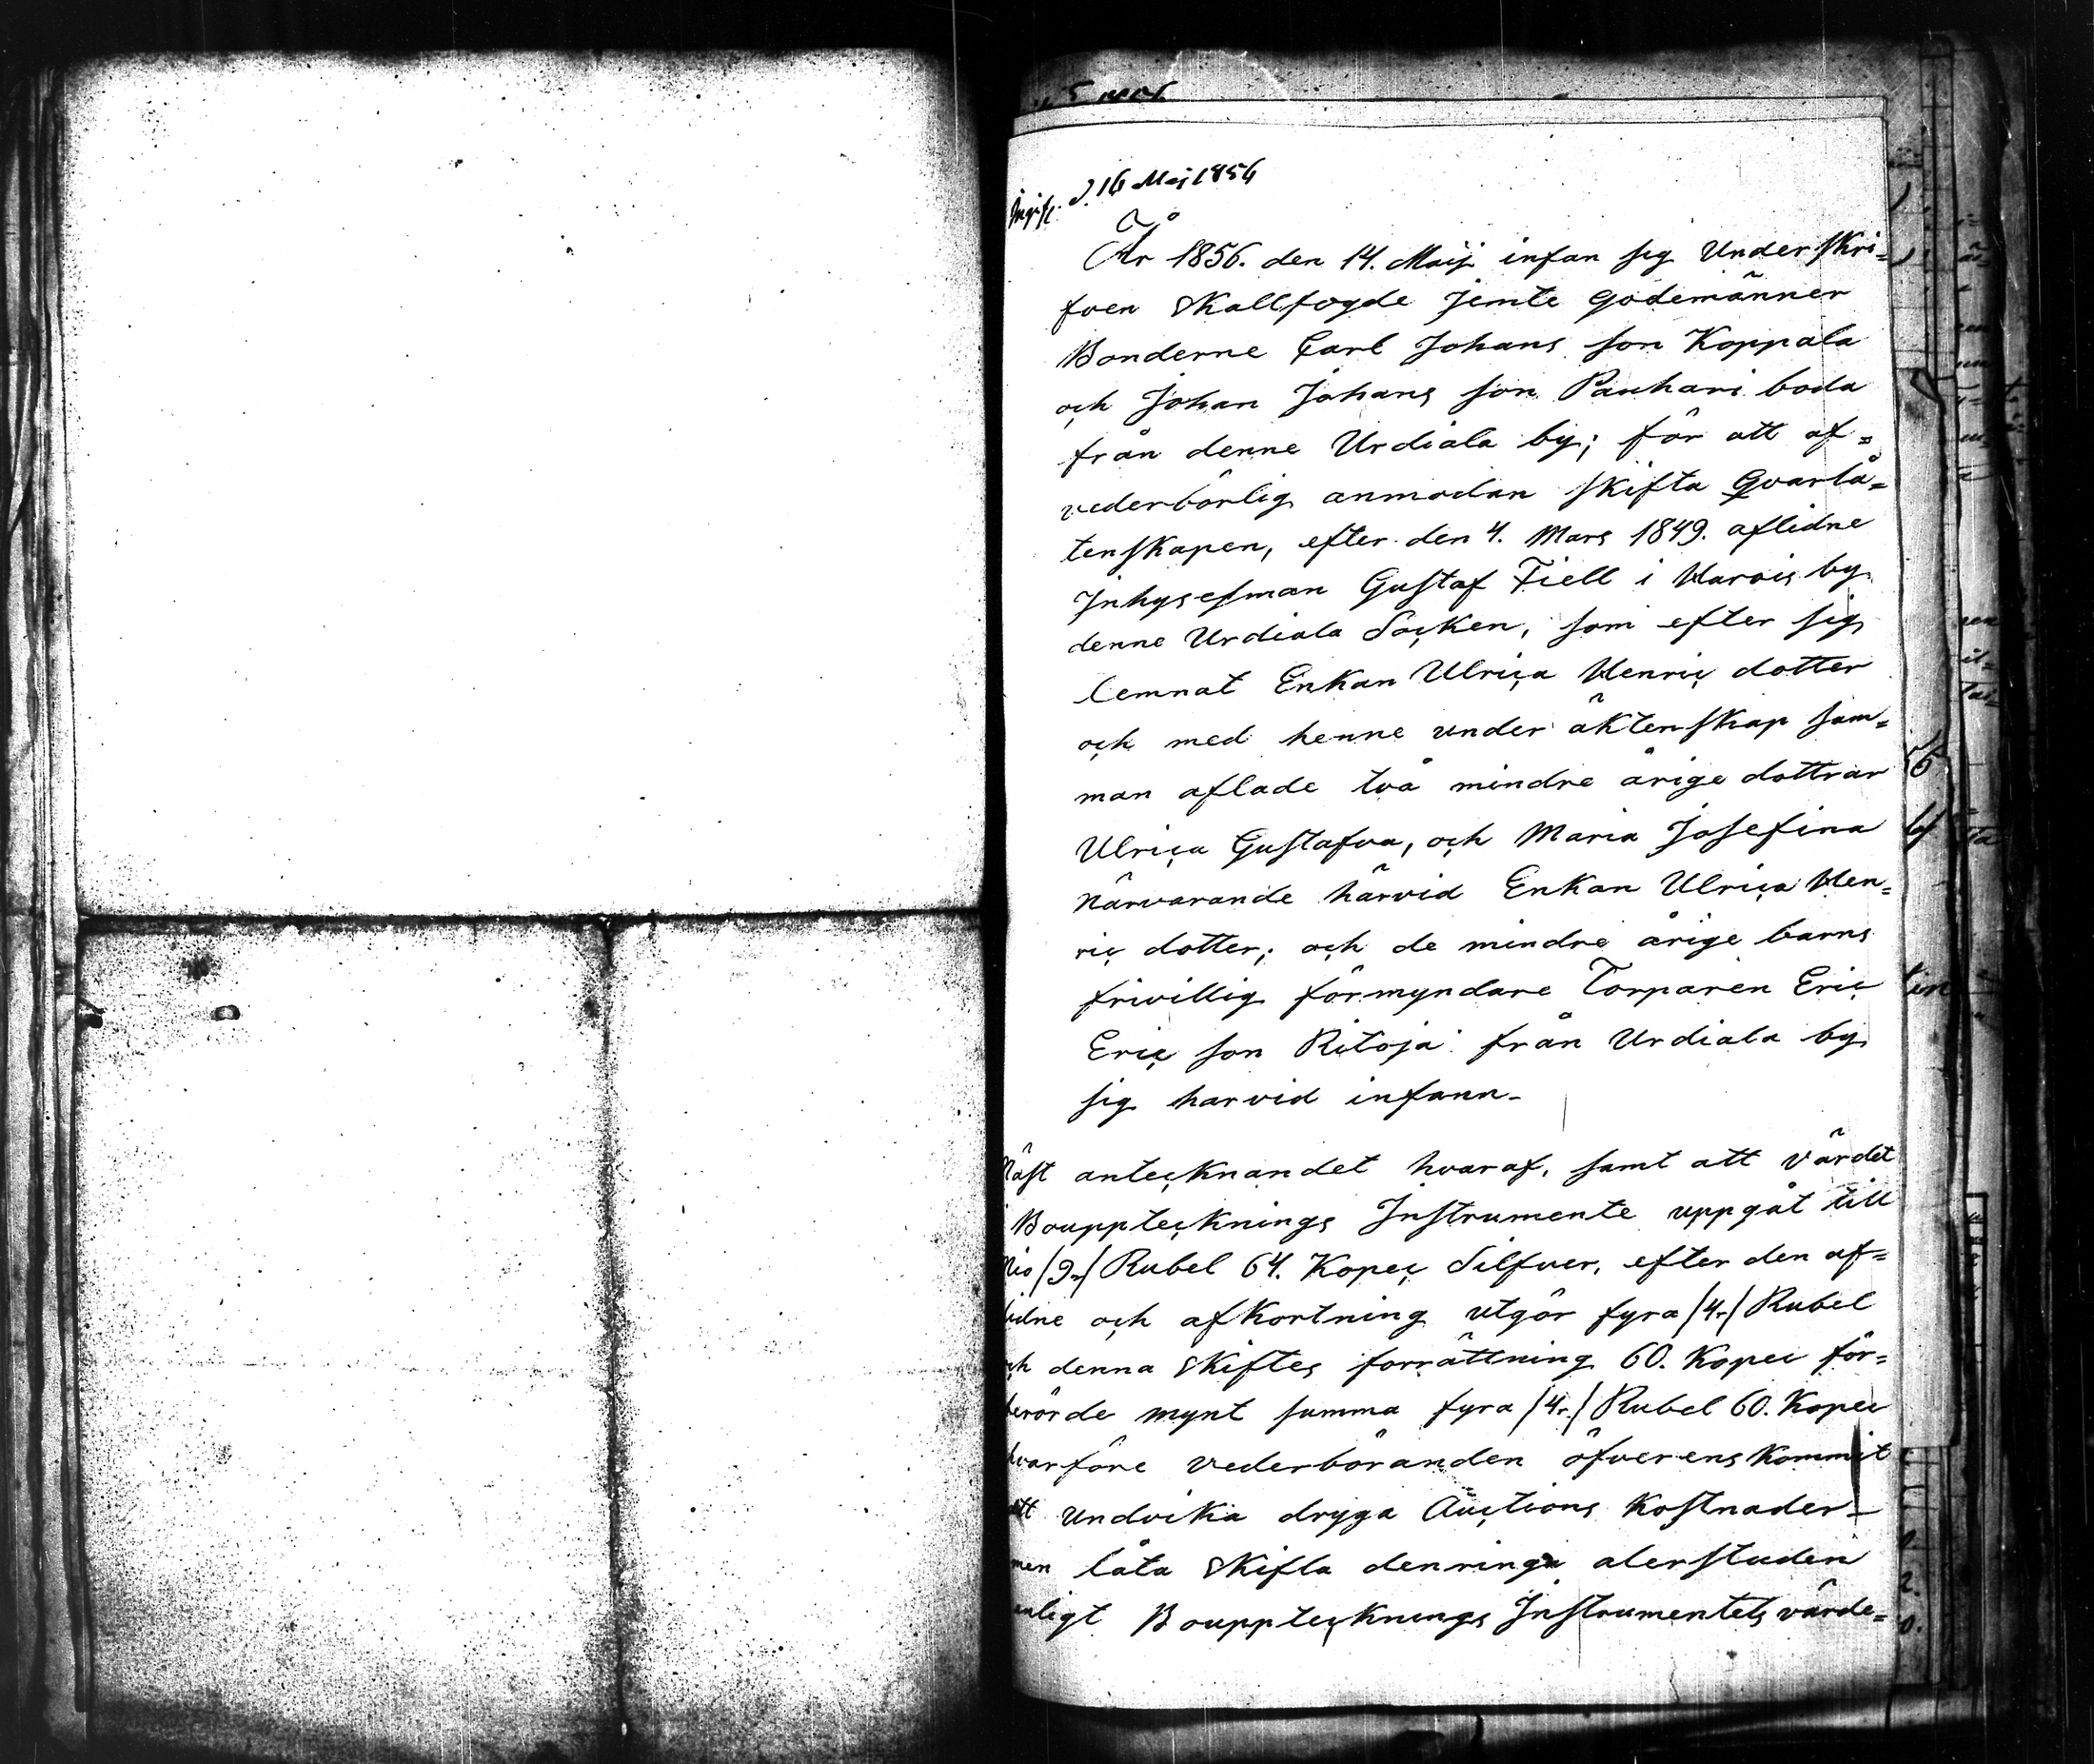 Ingift. d. 16 Maj 1856
År 1856. den 14. Maij infan sig Underskri=
fven Skallfogde jemte Godemänner
Bonderne Carl Johans son Koppala
och Johan Johans son Pauhari boda
från denne Urdiala by; för att af=
vederbörlig anmodan skifta Qvarlå=
tenskapen, efter den 4. Mars 1849. aflidne
Inhysesman Gustaf Fiell i Harois by
denne Urdiala Socken, som efter sig
lemnat Enkan Ulrica Henric dotter
och med henne under äktenskap sam=
man aflade två mindre årige dottrar
Ulrica Gustafva, och Maria Josefina
närvarande härvid Enkan Ulrica Hen=
ric dotter; och de mindre årige barns
frivillig förmyndare Torparen Eric
Eric son Ritoja från Urdiala by
sig harvid infann-
Näst antecknandet hvaraf, samt att värdet
Bouppteknings Instrumente uppgåt till
Nio /9r/ Rubel 64. Kopec Silfver, efter den af=
lidne och afkortning utgör fyra /4r/ Rubel
och denna Skiftes forrättning 60. Kopec för=
berörde mynt summa fyra /4r/ Rubel 60. Kopec
hvarföre vederböranden öfverenskommit
att undvika dryga Auctions Kostnader-
men låta Skifta denringa aterstuden
enligt Bouppteknings Instrumentets värde=